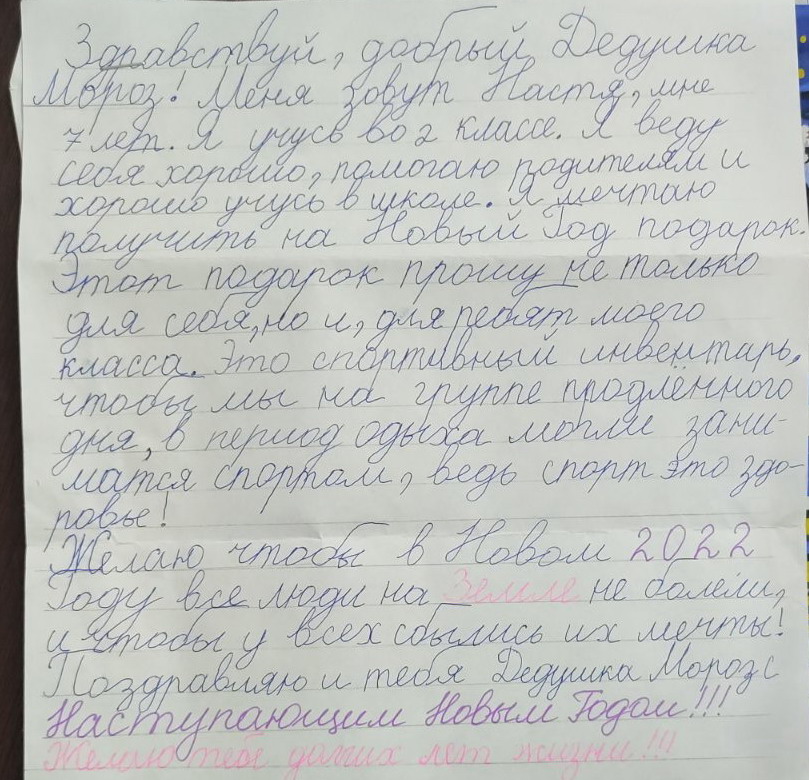 Здравствуй, добрый Дедушка
Мороз! Меня зовут Настя, мне
7 лет. Я учусь во 2 классе. Я веду
себя хорошо, помогаю родителям и
хорошо учусь в школе. Я мечтаю
получить на Новый Год подарок.
Этот подарок прошу не только
для себя, но и, для ребят моего
класса. Это спортивный инвентарь,
чтобы мы на группе продлённого
дня, в период одыха могли зани-
матся спортом, ведь спорт это здо-
ровье!
Желаю чтобы в Новом 2022
Году все люди на Земле не болели,
и чтобы у всех сбылись их мечты!
Поздравляю и тебя Дедушка Мороз с
Наступающим Новым Годом!!!
Желаю тебе долгих лет жизни!!!